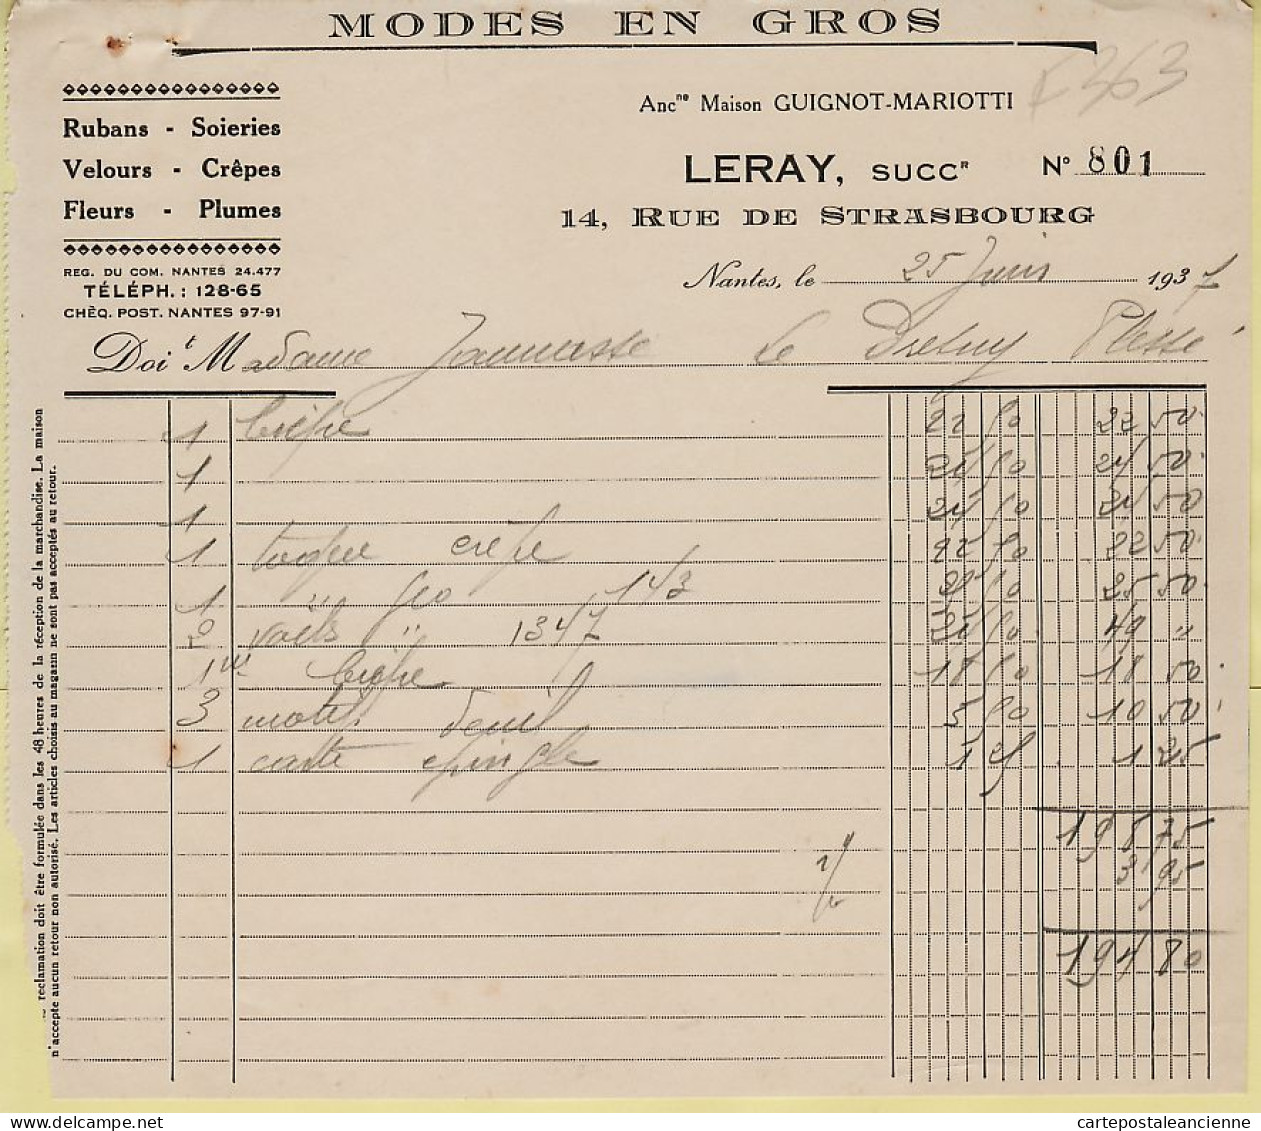 MODES EN GROS
Rubans - Soieries
Velours - Crêpes
Fleurs - Plumes
REG. DU COM. NANTES 24.477
TÉLÉPH. : 128-65
CHÈQ. POST. NANTES 97-91
363
Ancne Maison GUIGNOT-MARIOTTI
LERAY, SUCCR N° 801
14, RUE DE STRASBOURG
Nantes, le 25 Juin 1937
Doit Madame Le Plessé
1 22 50 22 50
1 24 50 24 50
1 24 50 24 50
1 toque crêpe 22 50 22 50
1 " 143 25 50 25 50
2 " 1347 24 50 49 "
1 18 50 18 50
3 motifs deuil 3 50 10 50
1 carte épingle 1 25 1 25
198 75
3 95
194 80
reclamation doit être formulée dans les 48 heures de la réception de la marchandise. La maison
n'accepte aucun retour non autorisé. Les articles choisis au magasin ne sont pas acceptés au retour.
cartepostaleancienne